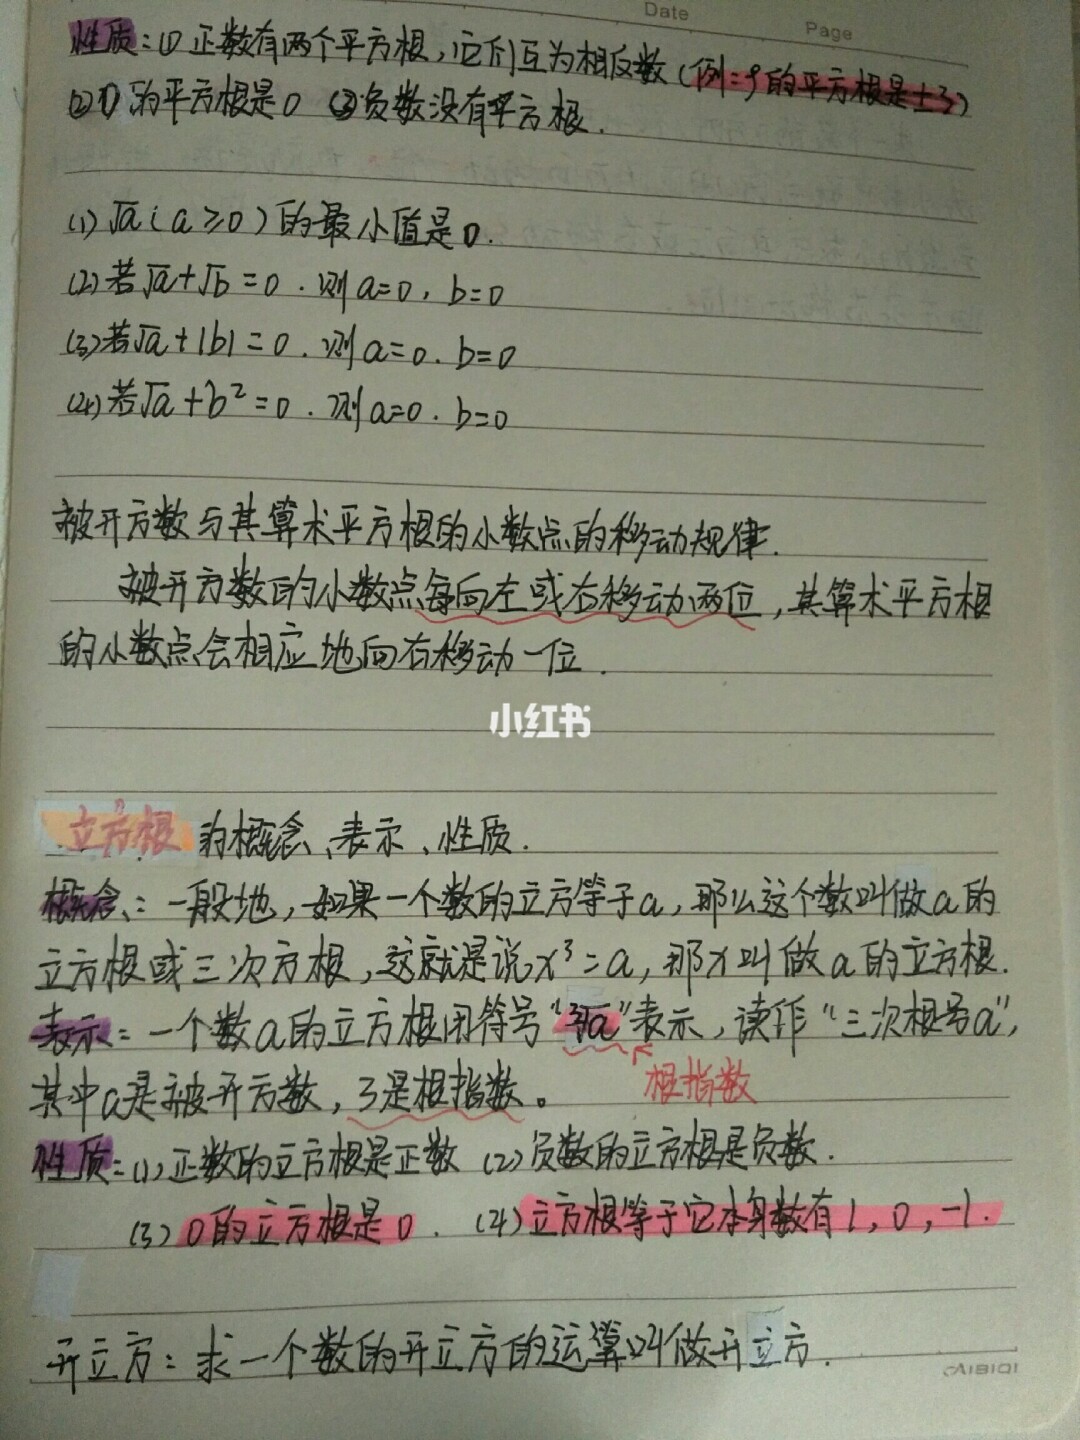 Date
Page
性质：(1) 正数有两个平方根，它们互为相反数（例：9的平方根是±3）
(2) 0的平方根是0 (3)负数没有平方根．
(1) √a（a≥0）的最小值是0．
(2) 若√a+√b=0．则a=0，b=0
(3) 若√a+|b|=0．则a=0．b=0
(4) 若√a+b²=0．则a=0．b=0
被开方数与其算术平方根的小数点的移动规律．
被开方数的小数点每向左或右移动两位，其算术平方根
的小数点会相应地向右移动一位．
小红书
立方根的概念、表示、性质．
概念：一般地，如果一个数的立方等于a，那么这个数叫做a的
立方根或三次方根，这就是说x³=a，那x叫做a的立方根．
表示：一个数a的立方根用符号“³√a”表示，读作“三次根号a”，
根指数
其中a是被开方数，3是根指数。
性质：(1)正数的立方根是正数 (2)负数的立方根是负数．
(3) 0的立方根是0．(4)立方根等于它本身数有1，0，-1．
开立方：求一个数的开立方的运算叫做开立方．